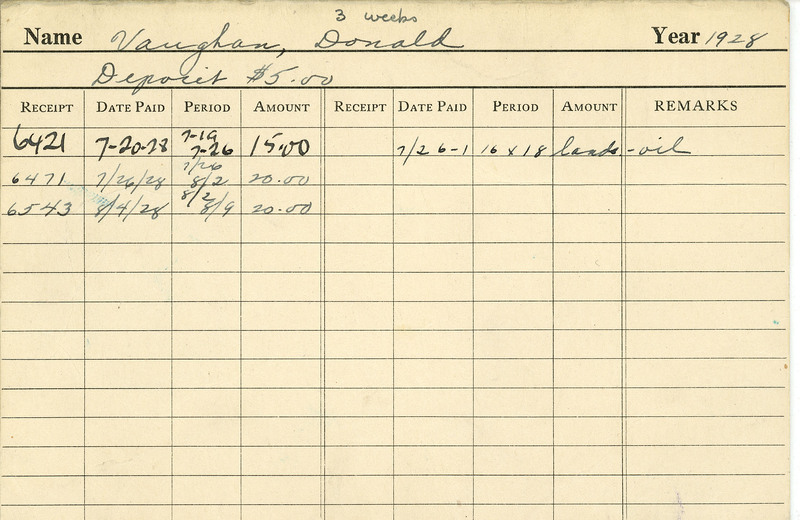 3 weeks
Name Vaughan, Donald Year 1928
Deposit $5.00
RECEIPT DATE PAID PERIOD AMOUNT RECEIPT DATE PAID PERIOD AMOUNT REMARKS
7-19
6421 7-20-28 7-26 15.00 7/26-1 16 x 18 lands.-oil
7/26
6471 7/26/28 8/2 20.00
8/2
6543 8/4/28 8/9 20.00